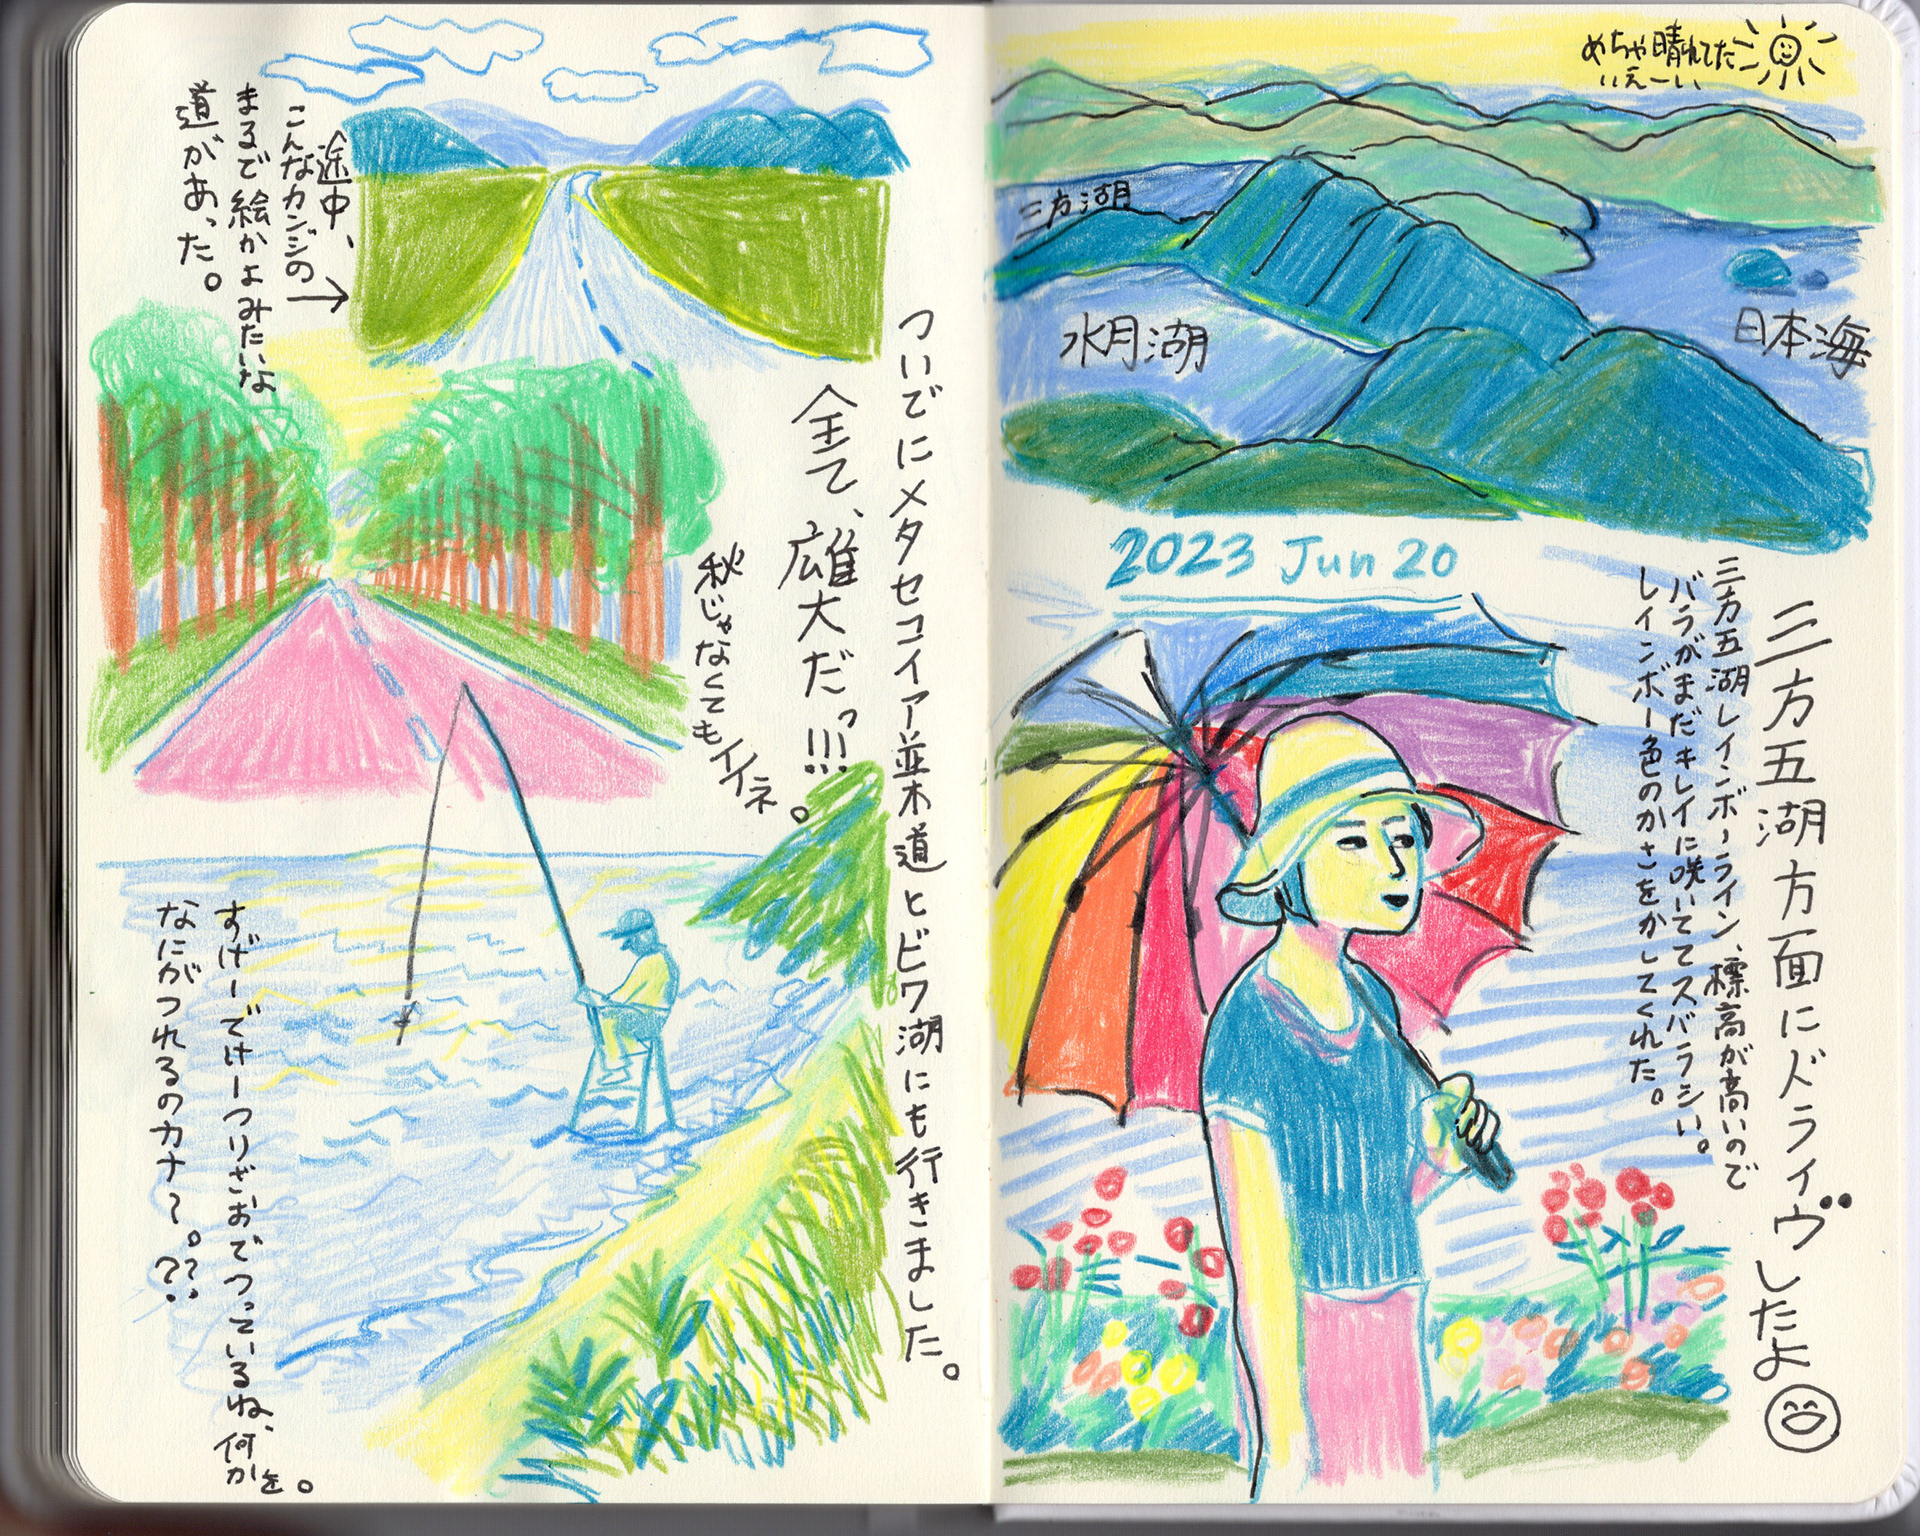 めちゃ晴れてた
いえーい
三方湖
水月湖
日本海
2023 Jun 20
三方五湖方面にドライヴしたよ
三方五湖レインボーライン、標高が高いので
バラがまだキレイに咲いててスバラシい。
レインボー色のかさをかしてくれた。
ついでにメタセコイア並木道とビワ湖にも行きました。
全て、雄大だっ!!!
秋じゃなくてもイイネ。
途中、
こんなカンジの→
まるで絵かよみたいな
道があった。
すげーでけーつりざおでつっているね、何かを。
なにがつれるのカナ〜。??